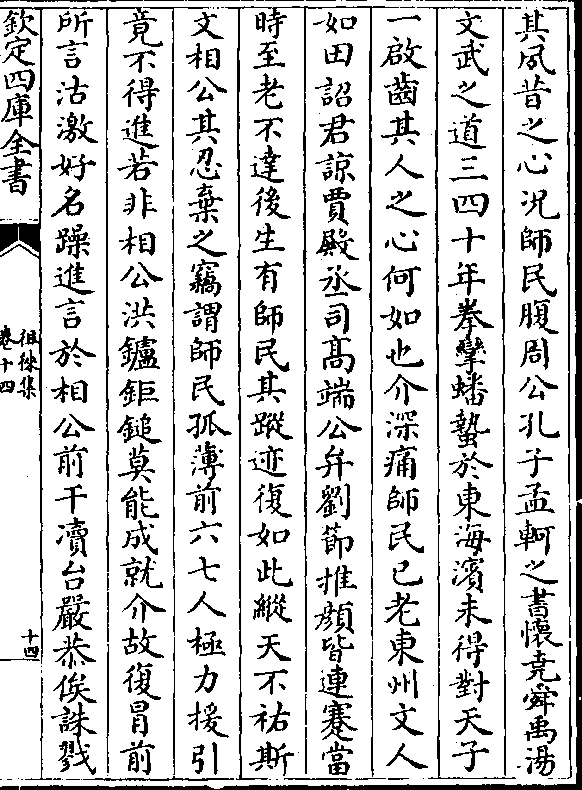 其夙昔之心况師民腹周公孔子孟軻之書懷堯舜禹湯
文武之道三四十年拳攣蟠蟄於東海濱未得對天子
一啟齒其人之心何如也介深痛師民已老東州文人
如田詔君諒賈殿丞司髙端公弁劉節推顔皆連蹇當
時至老不達後生有師民其蹤迹復如此縱天不祐斯
文相公其忍棄之竊謂師民孤薄前六七人極力援引
竟不得進若非相公洪鑪鉅鎚莫能成就介故復冒前
所言沽激好名躁進言於相公前干瀆台嚴恭俟誅戮
欽定四庫全書
徂徠集
卷十四
十四